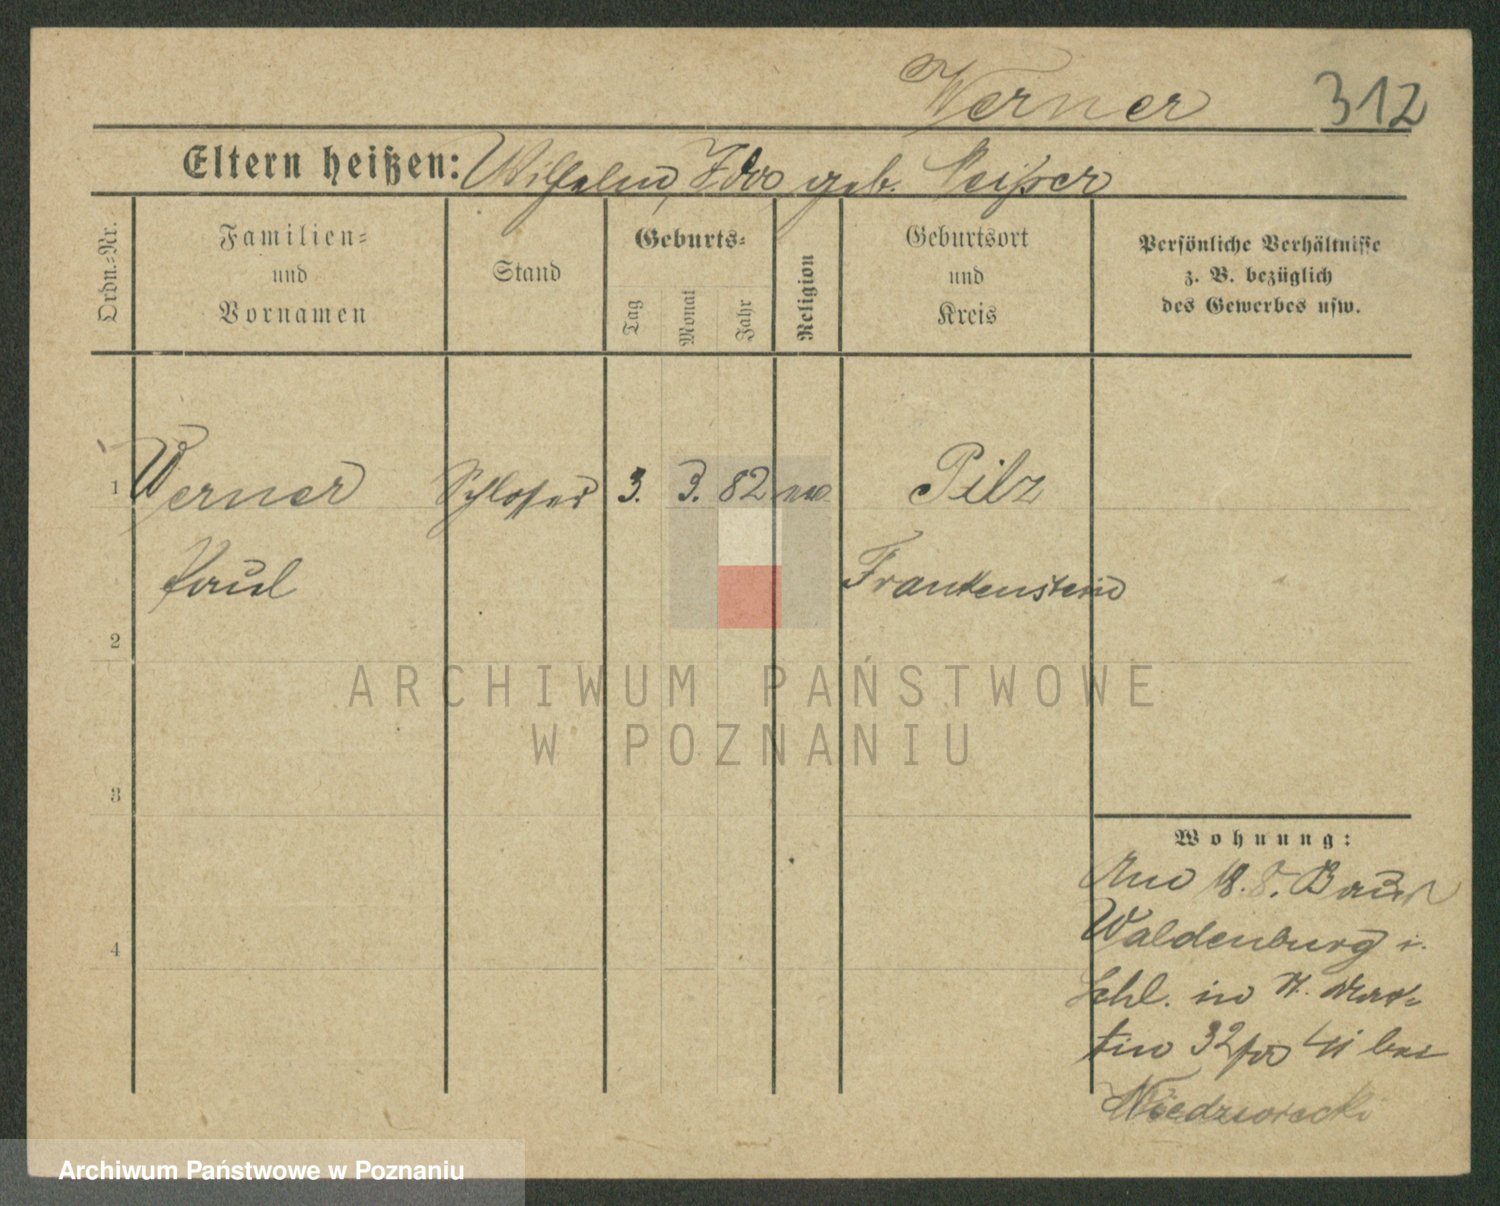 Werner 312
Eltern heißen: Wilhelm, Ida geb.
Ordn.-Nr.
Familien-
und
Vornamen
Stand
Geburts-
Tag
Monat
Jahr
Religion
Geburtsort
und
Kreis
Persönliche Verhältnisse
z. B. bezüglich
des Gewerbes usw.
1 Werner Schlosser 3. 3. 82 Pilz
Paul Frankenstein
2
ARCHIWUM PAŃSTWOWE
W POZNANIU
3
Wohnung:
18. 8.
Waldenburg i.
4
Schl. in St. Mar-
tin 32 bei
Niedzworecki
Archiwum Państwowe w Poznaniu